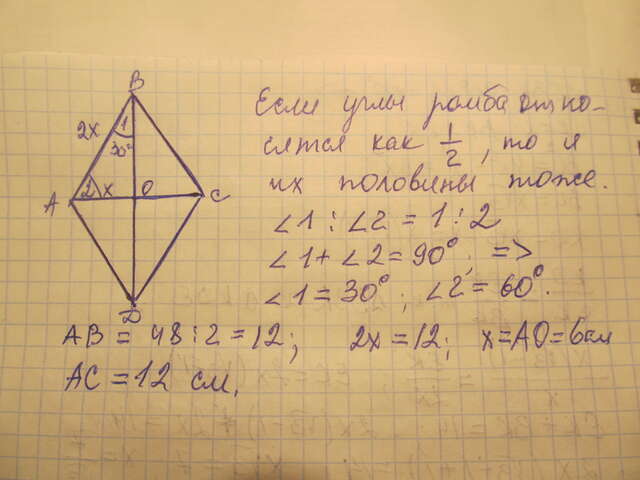 B
2x
1
30°
A
2
x
O
C
D
Если углы ромба отно-
сятся как 1/2, то и
их половины тоже.
∠1 : ∠2 = 1 : 2
∠1 + ∠2 = 90°; =>
∠1 = 30°; ∠2 = 60°.
AB = 48 : 2 = 12; 2x = 12; x = AO = 6 см
AC = 12 см.